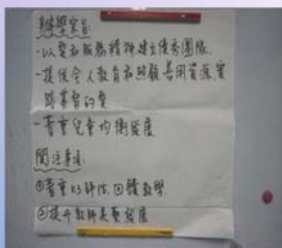 辦學宗旨
-以愛和服務精神建立優秀團隊
-提供全人教育和照顧善用資源,實
踐基督的愛
-著重兒童均衡發展
關注事項
①著重幼師生,回饋教學
②提升教師專業發展